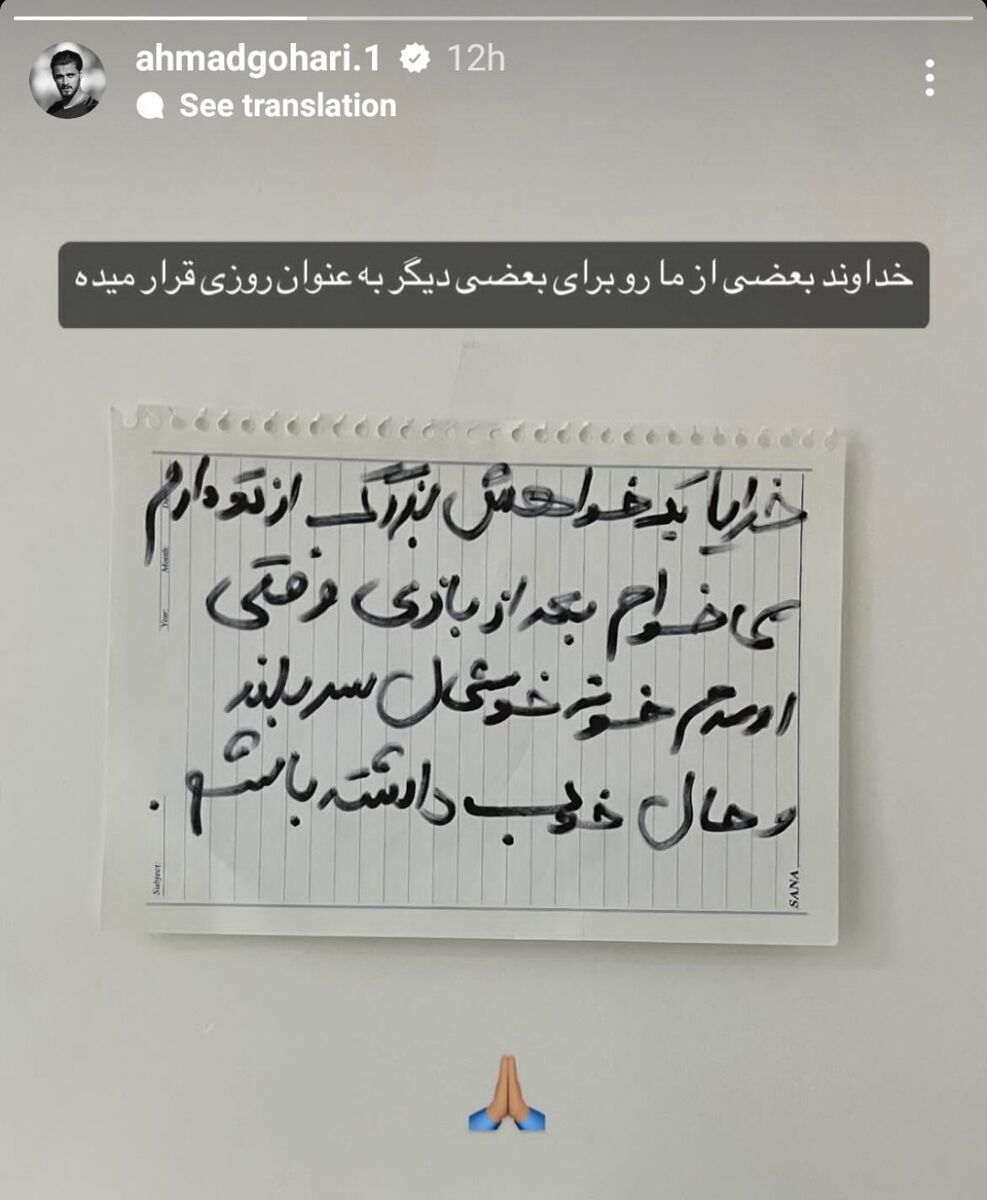 ahmadgohari.1 12h
See translation
خداوند بعضی از ما رو برای بعضی دیگر به عنوان روزی قرار میده
خدایا یک خواهش بزرگ از تو دارم
می خوام بعد از بازی وقتی
اومدم خونه خوشحال سربلند
و حال خوب داشته باشم .
Year: Month:
Subject:
SANA